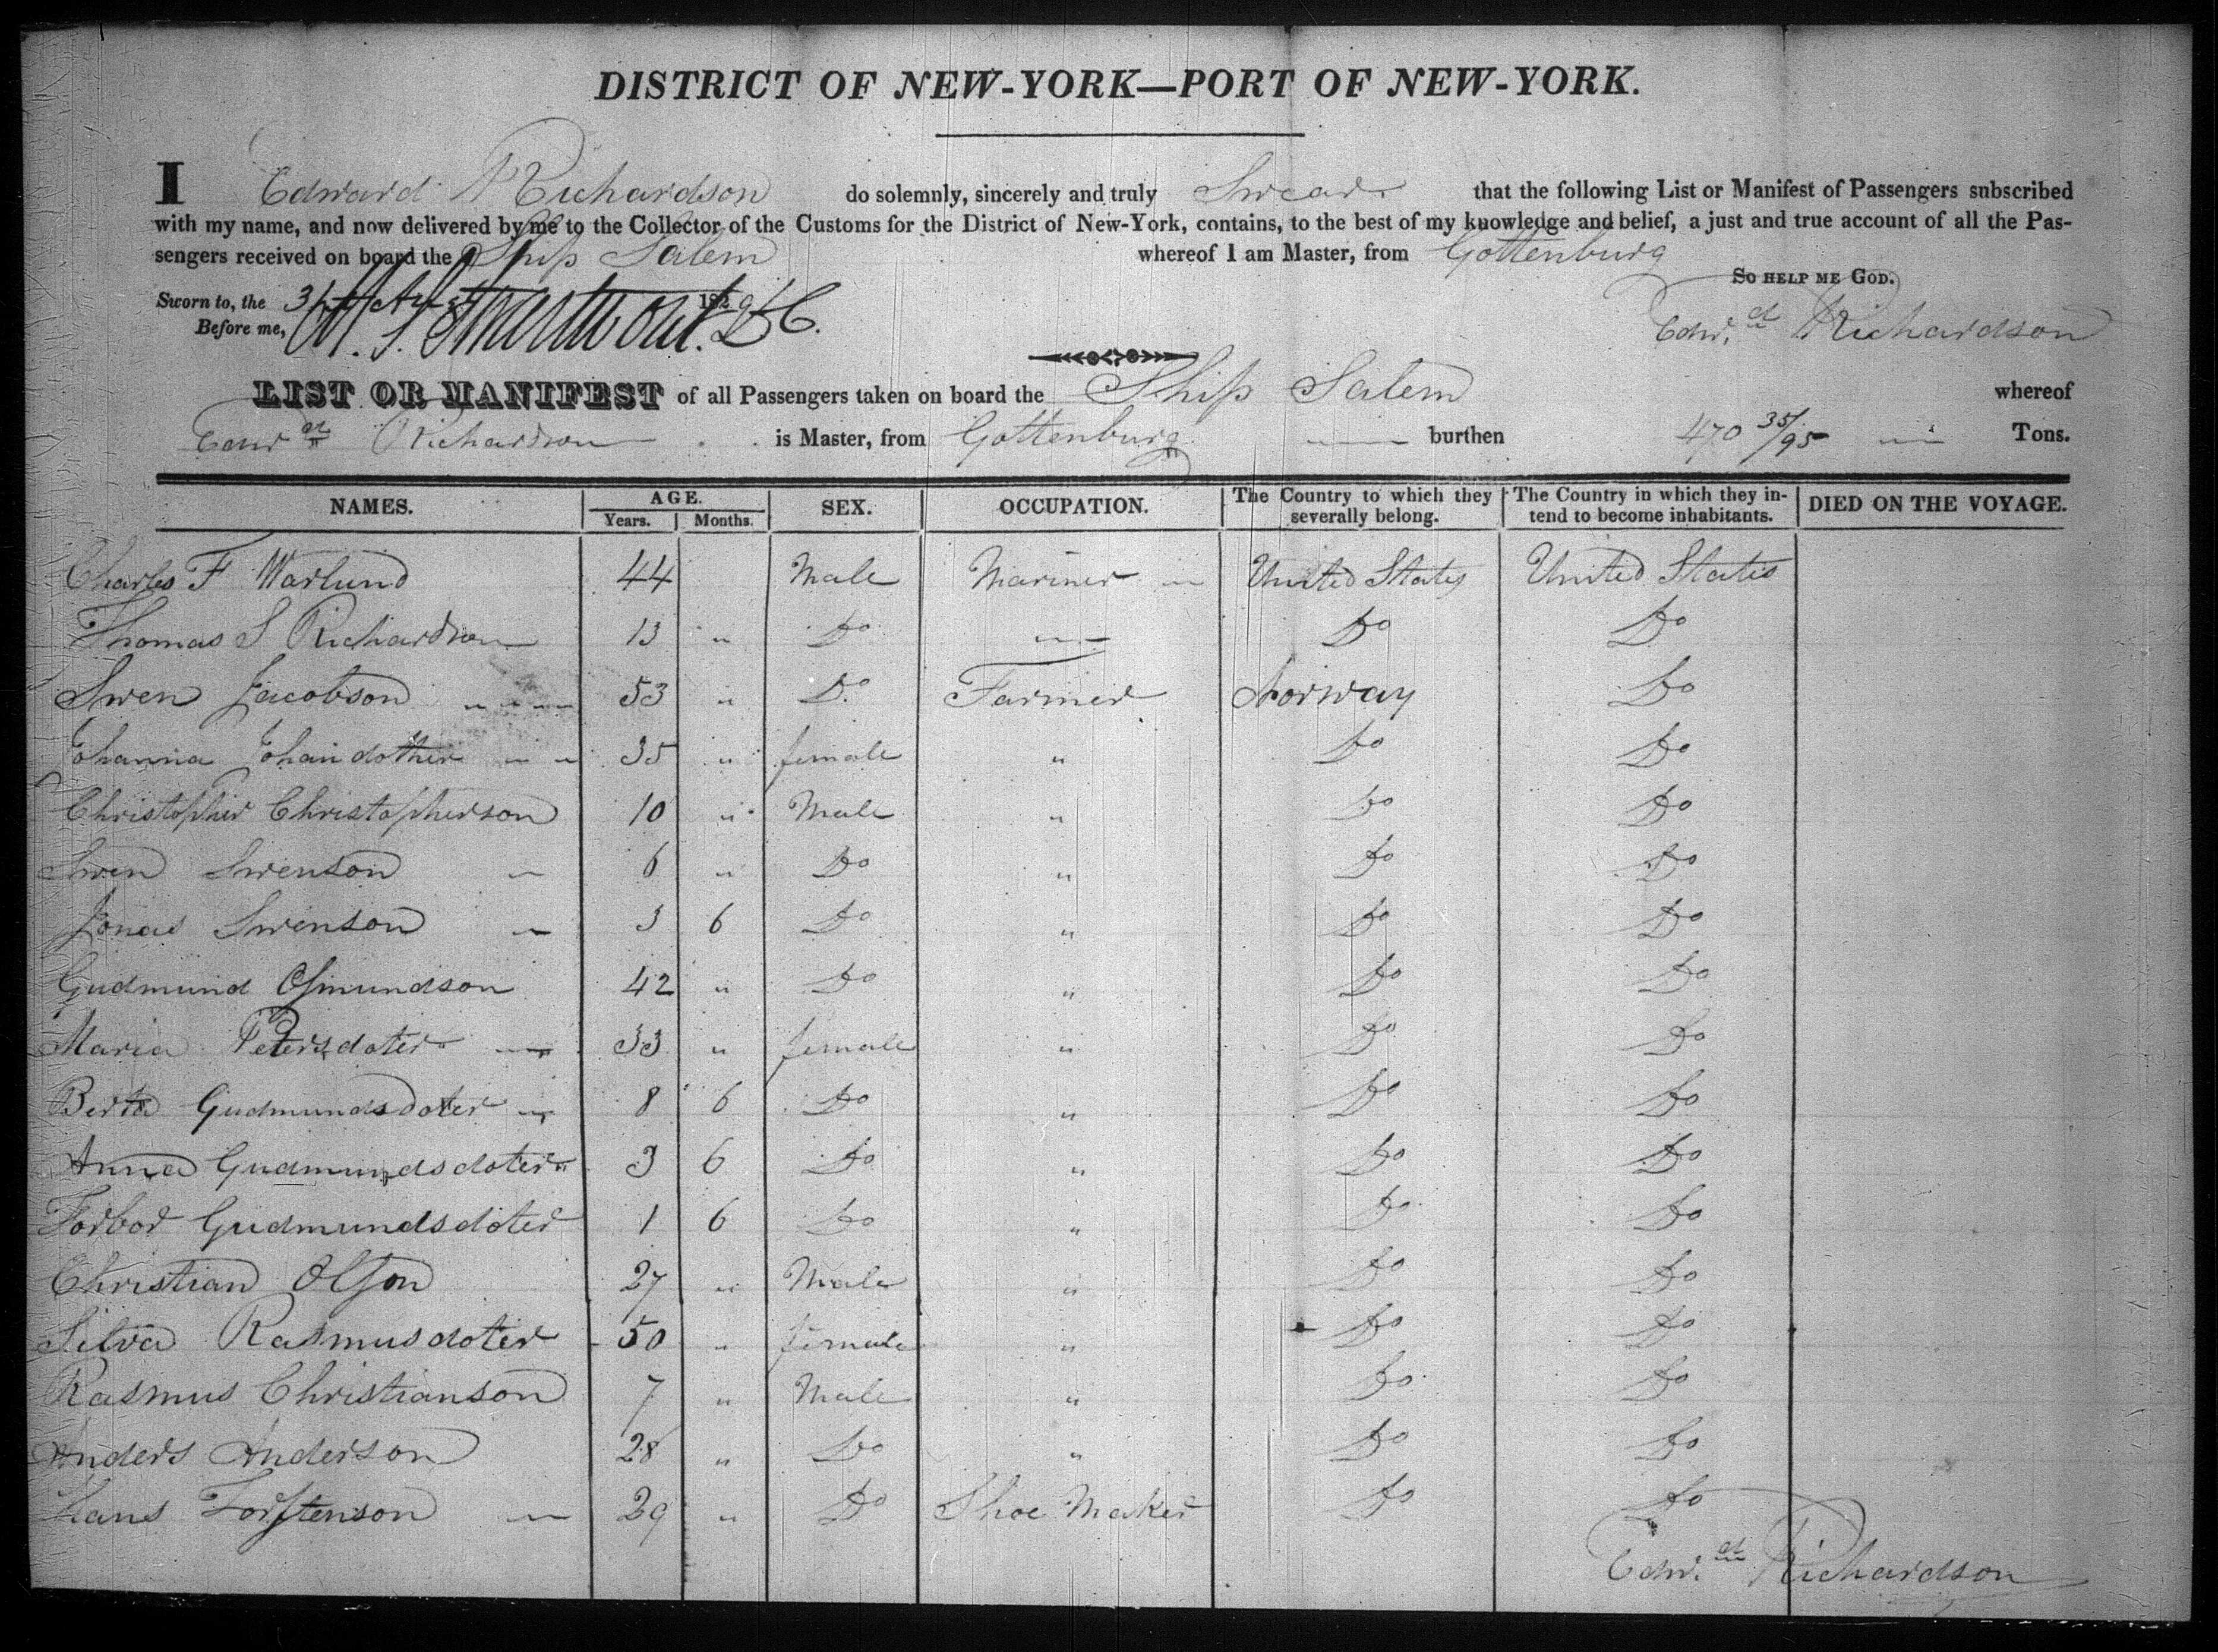 DISTRICT OF NEW-YORK—PORT OF NEW-YORK.
I Edward Richardson do solemnly, sincerely and truly Swear that the following List or Manifest of Passengers subscribed
with my name, and now delivered by me to the Collector of the Customs for the District of New-York, contains, to the best of my knowledge and belief, a just and true account of all the Pas-
sengers received on board the Ship Salem whereof I am Master, from Gottenburg
SO HELP ME GOD.
Sworn to, the 31st 1829
Before me,
Edwd Richardson
LIST OR MANIFEST of all Passengers taken on board the Ship Salem whereof
Edwd Richardson is Master, from Gottenburg burthen 470 35/95 Tons.
NAMES. AGE. Years. Months. SEX. OCCUPATION. The Country to which they severally belong. The Country in which they in-tend to become inhabitants. DIED ON THE VOYAGE.
Charles F Warlund 44 Male Mariner United States United States
Thomas S Richardson 13 " Do Do Do
Swen Jacobson 53 " Do Farmer Norway Do
Johanna Johan dother 35 " female " Do Do
Christopher Christopherson 10 " Male " Do Do
Swen Swenson 6 " Do " Do Do
Jonas Swenson 3 6 Do " Do Do
Gudmund Osmundson 42 " Do " Do Do
Maria Petersdoter 33 " female " Do Do
Berta Gudmundsdoter 8 6 Do " Do Do
Anna Gudmundsdoter 3 6 Do " Do Do
Torbor Gudmundsdoter 1 6 Do " Do Do
Christian Olson 27 " Male " Do Do
Silva Rasmusdoter 50 " female " Do Do
Rasmus Christianson 7 " Male " Do Do
Anders Anderson 28 " Do " Do Do
Hans Torstenson 29 " Do Shoe Maker Do Do
Edwd Richardson